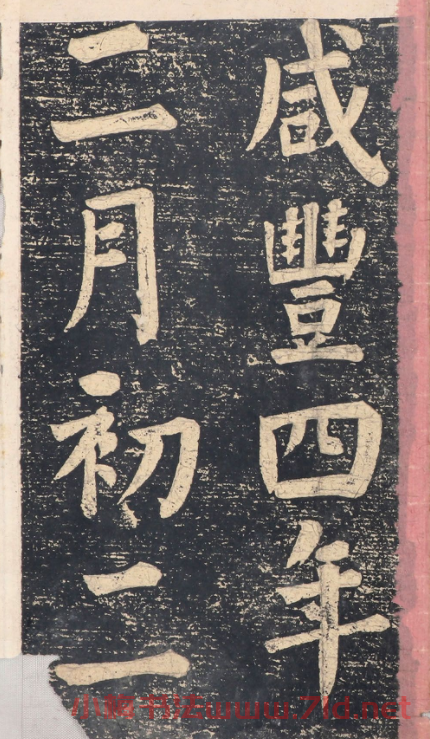 咸豐四年
二月初二
小楷书法www.7ld.net